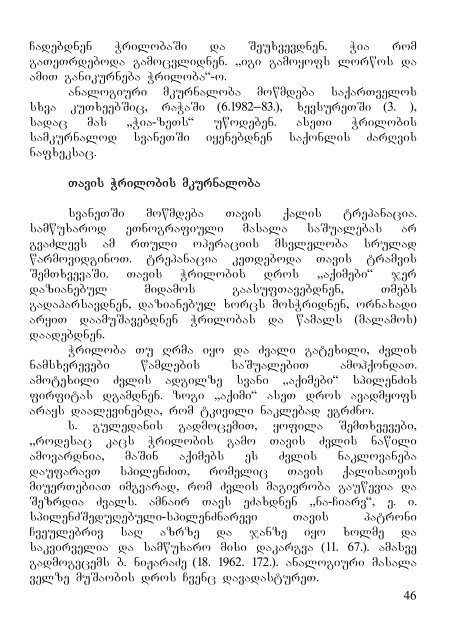 ჩადებდნენ ჭრილობაში და შეუხვევდნენ. ჭია რომ
გათეთრდებოდა გამოცვლიდნენ. „იგი გამოყოფს ლორწოს და
ამით განიკურნება ჭრილობა“-ო.
ანალოგიური მკურნალობა მოწმდება საქართველოს
სხვა კუთხეებშიც, რაჭაში (6.1982–83.), ხევსურეთში (3. ),
სადაც მას „ჭია-ზეთს“ უწოდებენ. ასეთი ჭრილობის
სამკურნალოდ სვანეთში იყენებდნენ საქონლის ძარღვის
ნაფხეკსაც.
თავის ჭრილობის მკურნალობა
სვანეთში მოწმდება თავის ქალის ტრეპანაცია.
სამწუხაროდ ეთნოგრაფიული მასალა საშუალებას არ
გვაძლევს ამ რთული ოპერაციის მსვლელობა სრულად
წარმოვიდგინოთ. ტრეპანაცია კეთდებოდა თავის ტრამვის
შემთხვევაში. თავის ჭრილობის დროს „აქიმები“ ჯერ
დაზიანებულ მიდამოს გაასუფთავებდნენ, თმებს
გადაპარსავდნენ, დაზიანებულ ხორცს მოსჭრიდნენ, ორნახადი
არყით დაამუშავებდნენ ჭრილობას და წამალს (მალამოს)
დაადებდნენ.
ჭრილობა თუ ღრმა იყო და ძვალი გატეხილი, ძვლის
ნამსხვრევები წამლების საშუალებით ამოჰქონდათ.
ამოტეხილი ძვლის ადგილზე სვანი „აქიმები“ სპილენძის
ფირფიტას დგამდნენ. ზოგი „აქიმი“ ასეთ დროს ავადმყოფს
არაყს დაალევინებდა, რომ ტკივილი ნაკლებად ეგრძნო.
ს. გულედანის გადმოცემით, ყოფილა შემთხვევები,
„როდესაც კაცს ჭრილობის გამო თავის ძვლის ნაწილი
ამოვარდნია, მაშინ აქიმებს ეს ძვლის ნაკლოვანება
დაუფარავთ სპილენძით, რომელიც თავის ქალისათვის
მიუერთებიათ იმგვარად, რომ ძვლის მაგივრობა გაუწევია და
შეზრდია ძვალს. ამნაირ თავს ეძახდნენ „ნა-ჩიარვ“, ე. ი.
სპილენძშედუღებული-სპილენძნარევი თავის პატრონი
ჩვეულებრივ საღ აზრზე და ჯანზე იყო ხოლმე და
საკვირველია და სამწუხარო მისი დაკარგვა (11. 67.). ამასვე
გადმოგვცემს ბ. ნიჟარაძე (18. 1962. 172.). ანალოგიური მასალა
ველზე მუშაობის დროს ჩვენც დავადასტურეთ.
46